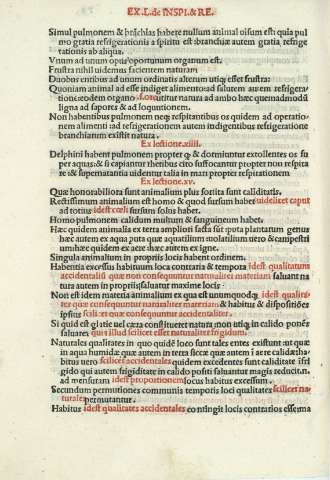 EX.L.de INSPI.& RE.
Simul pulmonem & brāchias habere nullum animal uisum est: quia pul
mo gratia refrigerationis a spiritu est branchiæ autem gratia, refrige
rationis ab aliqua.
Vnum ad unum opus oportunum organum est.
Frustra nihil uidemus facientem naturam
Duobus entibus ad unum ordinatis alterum utiq; esset frustra:
Quoniam animal ad esse indiget alimento: ad salutem autem refrigera/
tione: eodem organo Loro utitur natura ad ambo hæc quemadmodū
ligna ad sapores & ad loquutionem.
Non habentibus pulmonem neq; respitantibus os quidem ad operatio/
nem alimenti: ad refrigerationem autem indigentibus refrigeratione
branchiarum existit natura.
Ex lectione.xiiii.
Delphini habent pulmonem propter & dormiuntur excollentes os su
per aquas: & si capiantur rhetibus cito suffocantur propter non respira
re & supernatantia uidentur talia in mari propter respirationem
Ex lectione.xv.
Quæ honorabiliora sunt animalium plus sortita sunt caliditatis.
Rectissimum animalium est homo & quod sursum habet uidelicet caput
ad totius idest cœli sursum solus habet.
Homo pulmonem calidum multum & sanguineum habet.
Hæc quidem animalia ex terra ampliori facta sūt: puta plantarum genus
hæc autem ex aqua puta quæ aquatilium uolatilium uero & campestri
um hæc quidem ex aere hæc autem ex igne.
Singula animalium in propriis locis habent ordinem.
Habentia excessus habituum loca contraria & tempora idest qualitatum
accidentaliū quæ non consequuntur naturalitei materiam saluant na
tura autem in propriis saluatur maxime locis
Non est idem materia animalium ex qua est unumquodq; idest qualita/
tes quæ consequuntur naturaliter materiam: & habitus & dispositiōes
ipsius scili cet quæ consequuntur accidentaliter.
Si quid est glatie uel cæra constitueret natura non utiq; in calido ponēs
saluaret quia illud scilicet esset naturaliter frigidum.
Naturales qualitates in quo quidē loco sunt tales entes existunt aut quæ
in aqua humidæ quæ autem in terra siccæ quæ autem i aere calidæ: ha
bitus uero scilicet accidentales quidem excedentes sunt caliditate ī fri
gido qui autem frigiditate in calido positi saluantur magis reducit.n.
ad mensuram idest proportionem locus habitus excessum.
Secundum permutiones communis temporis loci qualitates scilicet na/
turales permutantur.
Habitus idest qualitates accidentales contingit locis contrarios esse: na